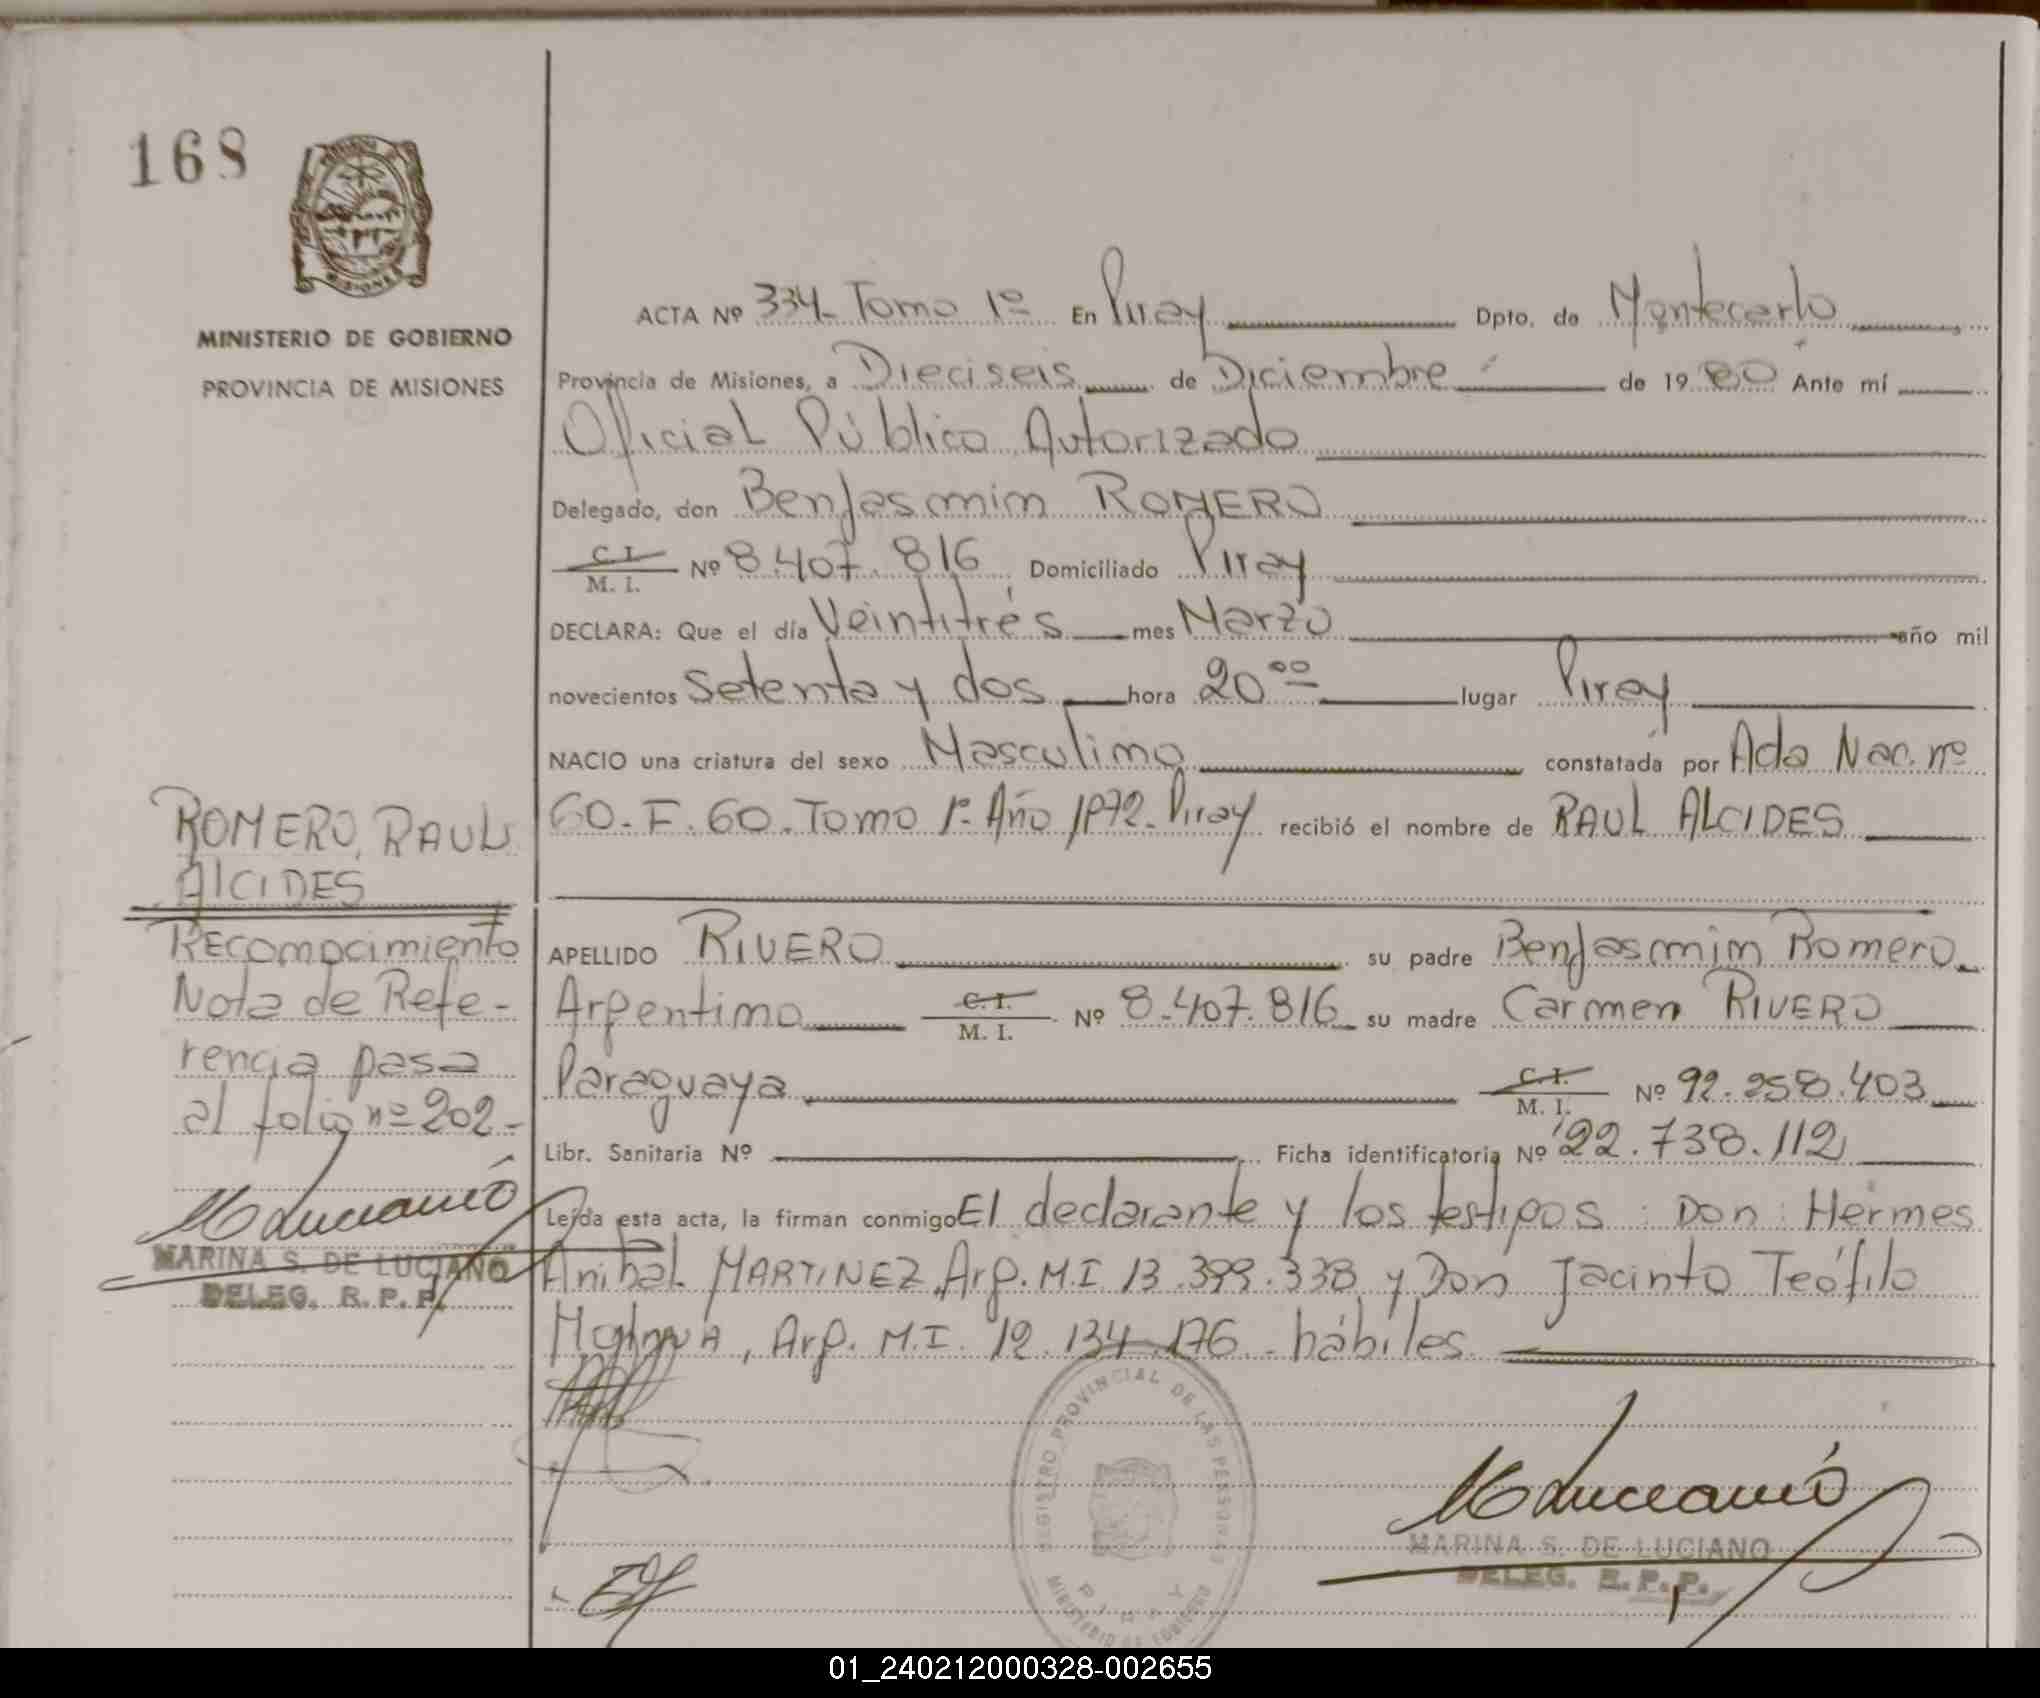 168
MISIONES
MINISTERIO DE GOBIERNO
PROVINCIA DE MISIONES
ACTA Nº 334- Tomo 1º En Piray Dpto. de Montecarlo
Provincia de Misiones, a Dieciseis de Diciembre de 1980 Ante mí
Oficial Público Autorizado
Delegado, don Benjasmim ROMERO
C. I.
M. I. Nº 8.407.816 Domiciliado Piray
DECLARA: Que el día Veintitrés mes Marzo año mil
novecientos Setenta y dos hora 20 00 lugar Piray
NACIO una criatura del sexo Masculino constatada por Acta Nac. nº
60. F. 60. Tomo 1º Año 1972. Piray recibió el nombre de RAUL ALCIDES
ROMERO, RAUL
ALCIDES
Reconocimiento
Nota de Refe-
rencia pasa
al folio nº 202-
MARINA S. DE LUCIANO
DELEG. R. P. P.
APELLIDO RIVERO su padre Benjasmim Romero
Argentino C. I. M. I. Nº 8.407.816 su madre Carmen RIVERO
Paraguaya C. I. M. I. Nº 92.258.403
Libr. Sanitaria Nº Ficha identificatoria Nº 22.738.112
Leída esta acta, la firman conmigo El declarante y los testigos: Don: Hermes
Anibal MARTINEZ, Arg. M.I 13.399.338 y Don Jacinto Teófilo
Arg. M.I. 12.134.176- hábiles
REGISTRO PROVINCIAL DE LAS PERSONAS
PIRAY
MINISTERIO DE GOBIERNO
MARINA S. DE LUCIANO
DELEG. R. P. P.
01_240212000328-002655